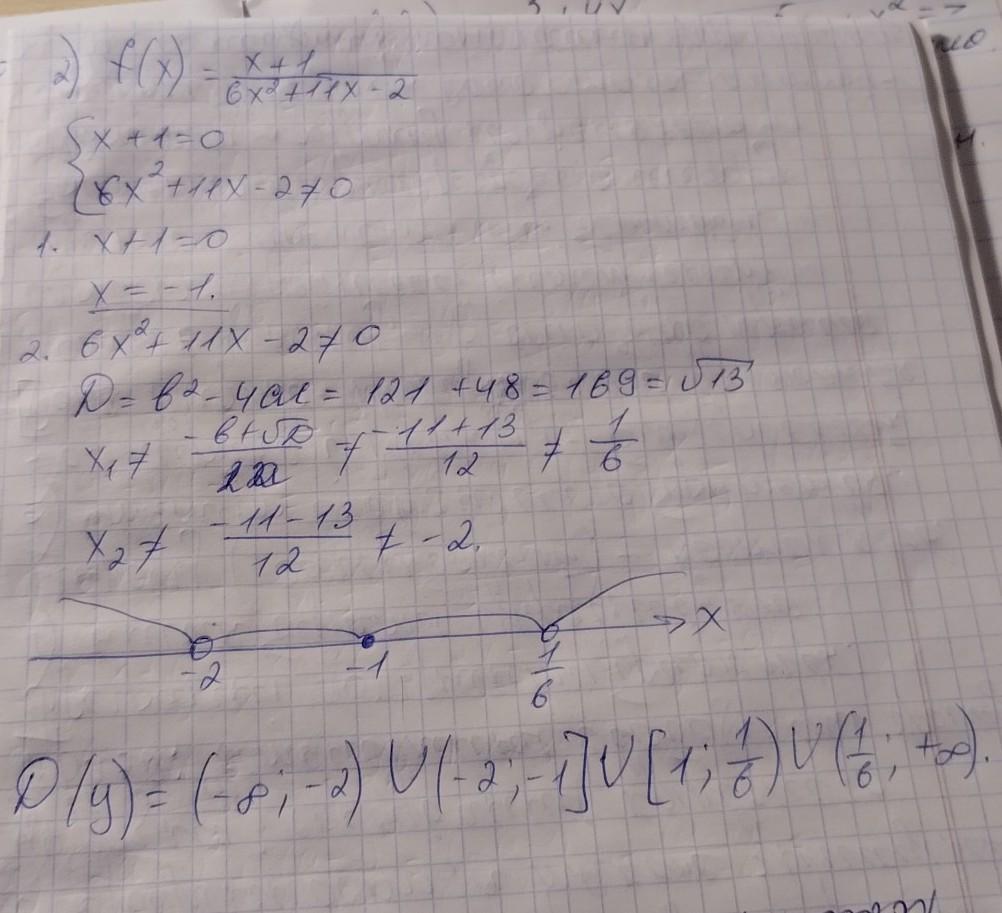 2) f(x) = \frac{x+1}{6x²+11x-2}
{ x+1=0
{ 6x²+11x-2≠0
1. x+1=0
x = -1.
2. 6x²+11x-2≠0
D = b²-4ac = 121+48 = 169 = √13
x₁ ≠ \frac{-b+√D}{2a} ≠ \frac{-11+13}{12} ≠ \frac{1}{6}
x₂ ≠ \frac{-11-13}{12} ≠ -2.
-2 -1 \frac{1}{6} x
D(y) = (-∞; -2) ∪ (-2; -1] ∪ [1; \frac{1}{6}) ∪ (\frac{1}{6}; +∞).